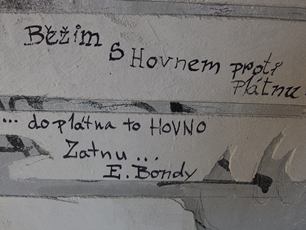 Běžím s Hovnem proti
Plátnu
... do plátna to HOVNO
Zatnu ...
E. Bondy